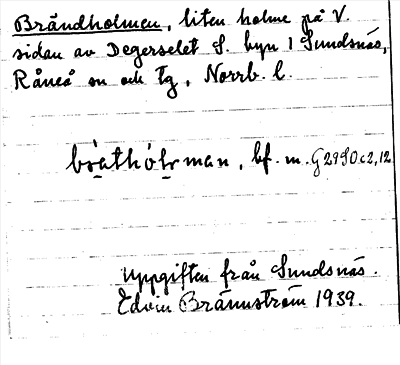 Brändholmen, liten holme på V.
sidan av Degerselet S. byn i Sundsnäs,
Råneå sn och tg, Norrb. l.
bf. m. G 29 SO c 2, 12
Uppgiften från Sundsnäs.
Edvin Brännström 1939.